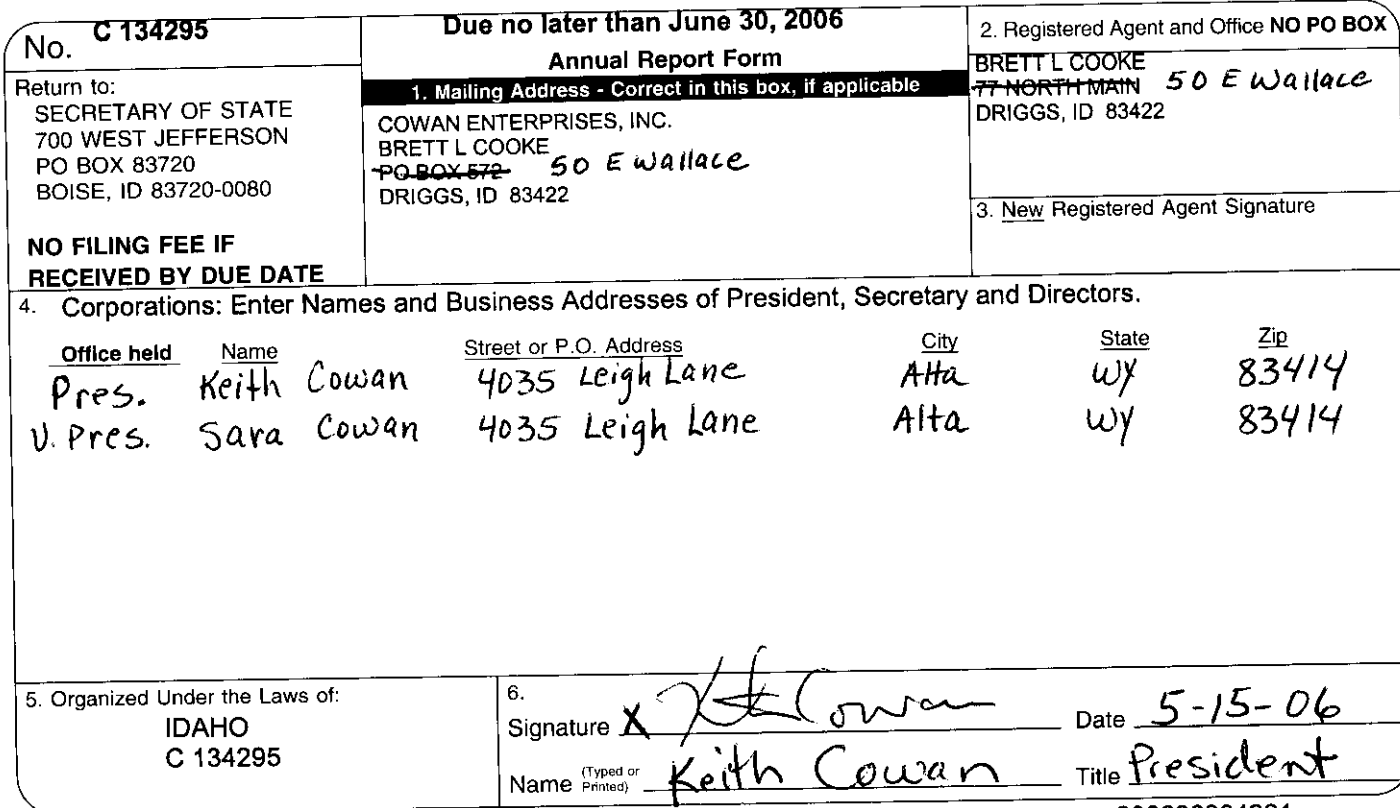 No. C 134295
Return to:
SECRETARY OF STATE
700 WEST JEFFERSON
PO BOX 83720
BOISE, ID 83720-0080
NO FILING FEE IF
RECEIVED BY DUE DATE
Due no later than June 30, 2006
Annual Report Form
1. Mailing Address - Correct in this box, if applicable
COWAN ENTERPRISES, INC.
BRETT L COOKE
PO BOX 572 50 E Wallace
DRIGGS, ID 83422
2. Registered Agent and Office NO PO BOX
BRETT L COOKE
77 NORTH MAIN 50 E Wallace
DRIGGS, ID 83422
3. New Registered Agent Signature
4. Corporations: Enter Names and Business Addresses of President, Secretary and Directors.
Office held Name Street or P.O. Address City State Zip
Pres. Keith Cowan 4035 Leigh Lane Alta WY 83414
V. Pres. Sara Cowan 4035 Leigh Lane Alta WY 83414
5. Organized Under the Laws of:
IDAHO
C 134295
6.
Signature X Keith Cowan Date 5-15-06
Name (Typed or Printed) Keith Cowan Title President